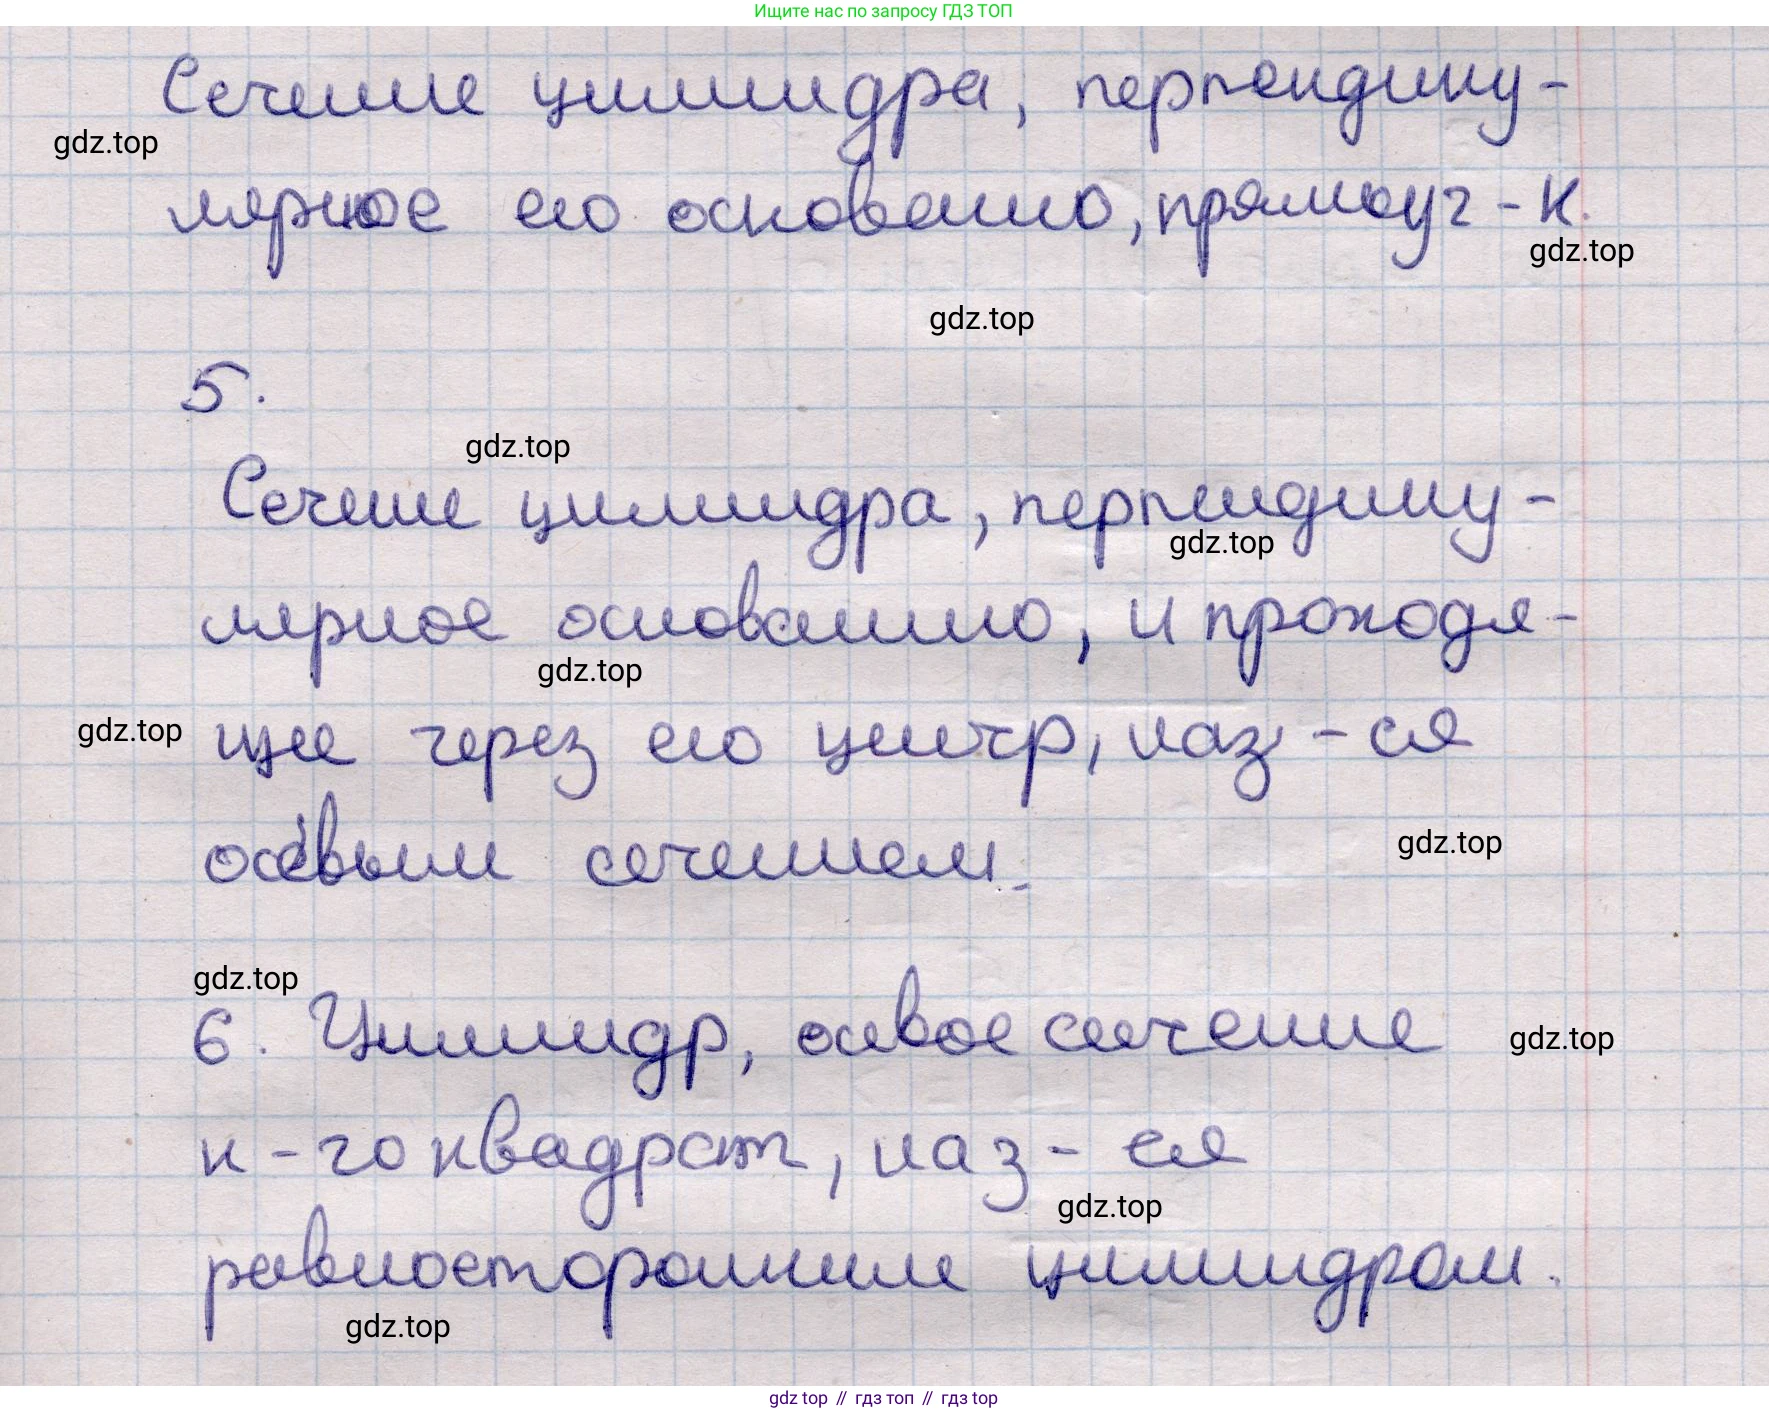 Ищите нас по запросу ГДЗ ТОП
Сечение цилиндра, перпендику-
gdz.top
лярное его основанию, прямоуг-к.
gdz.top
gdz.top
5.
gdz.top
Сечение цилиндра, перпендику-
gdz.top
лярное основанию, и проходя-
gdz.top
gdz.top
щее через его центр, наз-ся
gdz.top
осевым сечением.
gdz.top
6. Цилиндр, осевое сечение
gdz.top
к-го квадрат, наз-ся
gdz.top
равносторонним цилиндром.
gdz.top
gdz top // гдз топ // гдз top